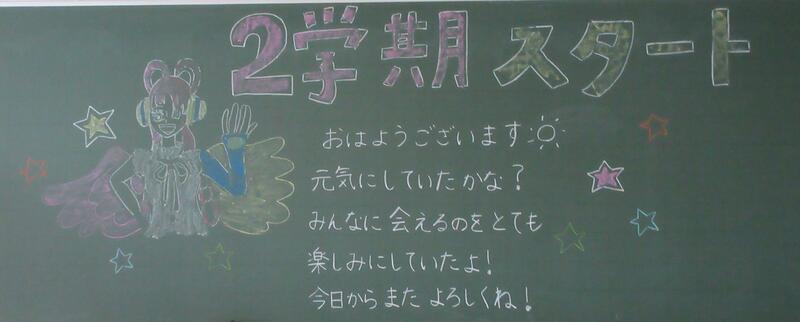 2学期 スタート
おはようございます
元気にしていたかな?
みんなに会えるのをとても
楽しみにしていたよ!
今日からまたよろしくね!